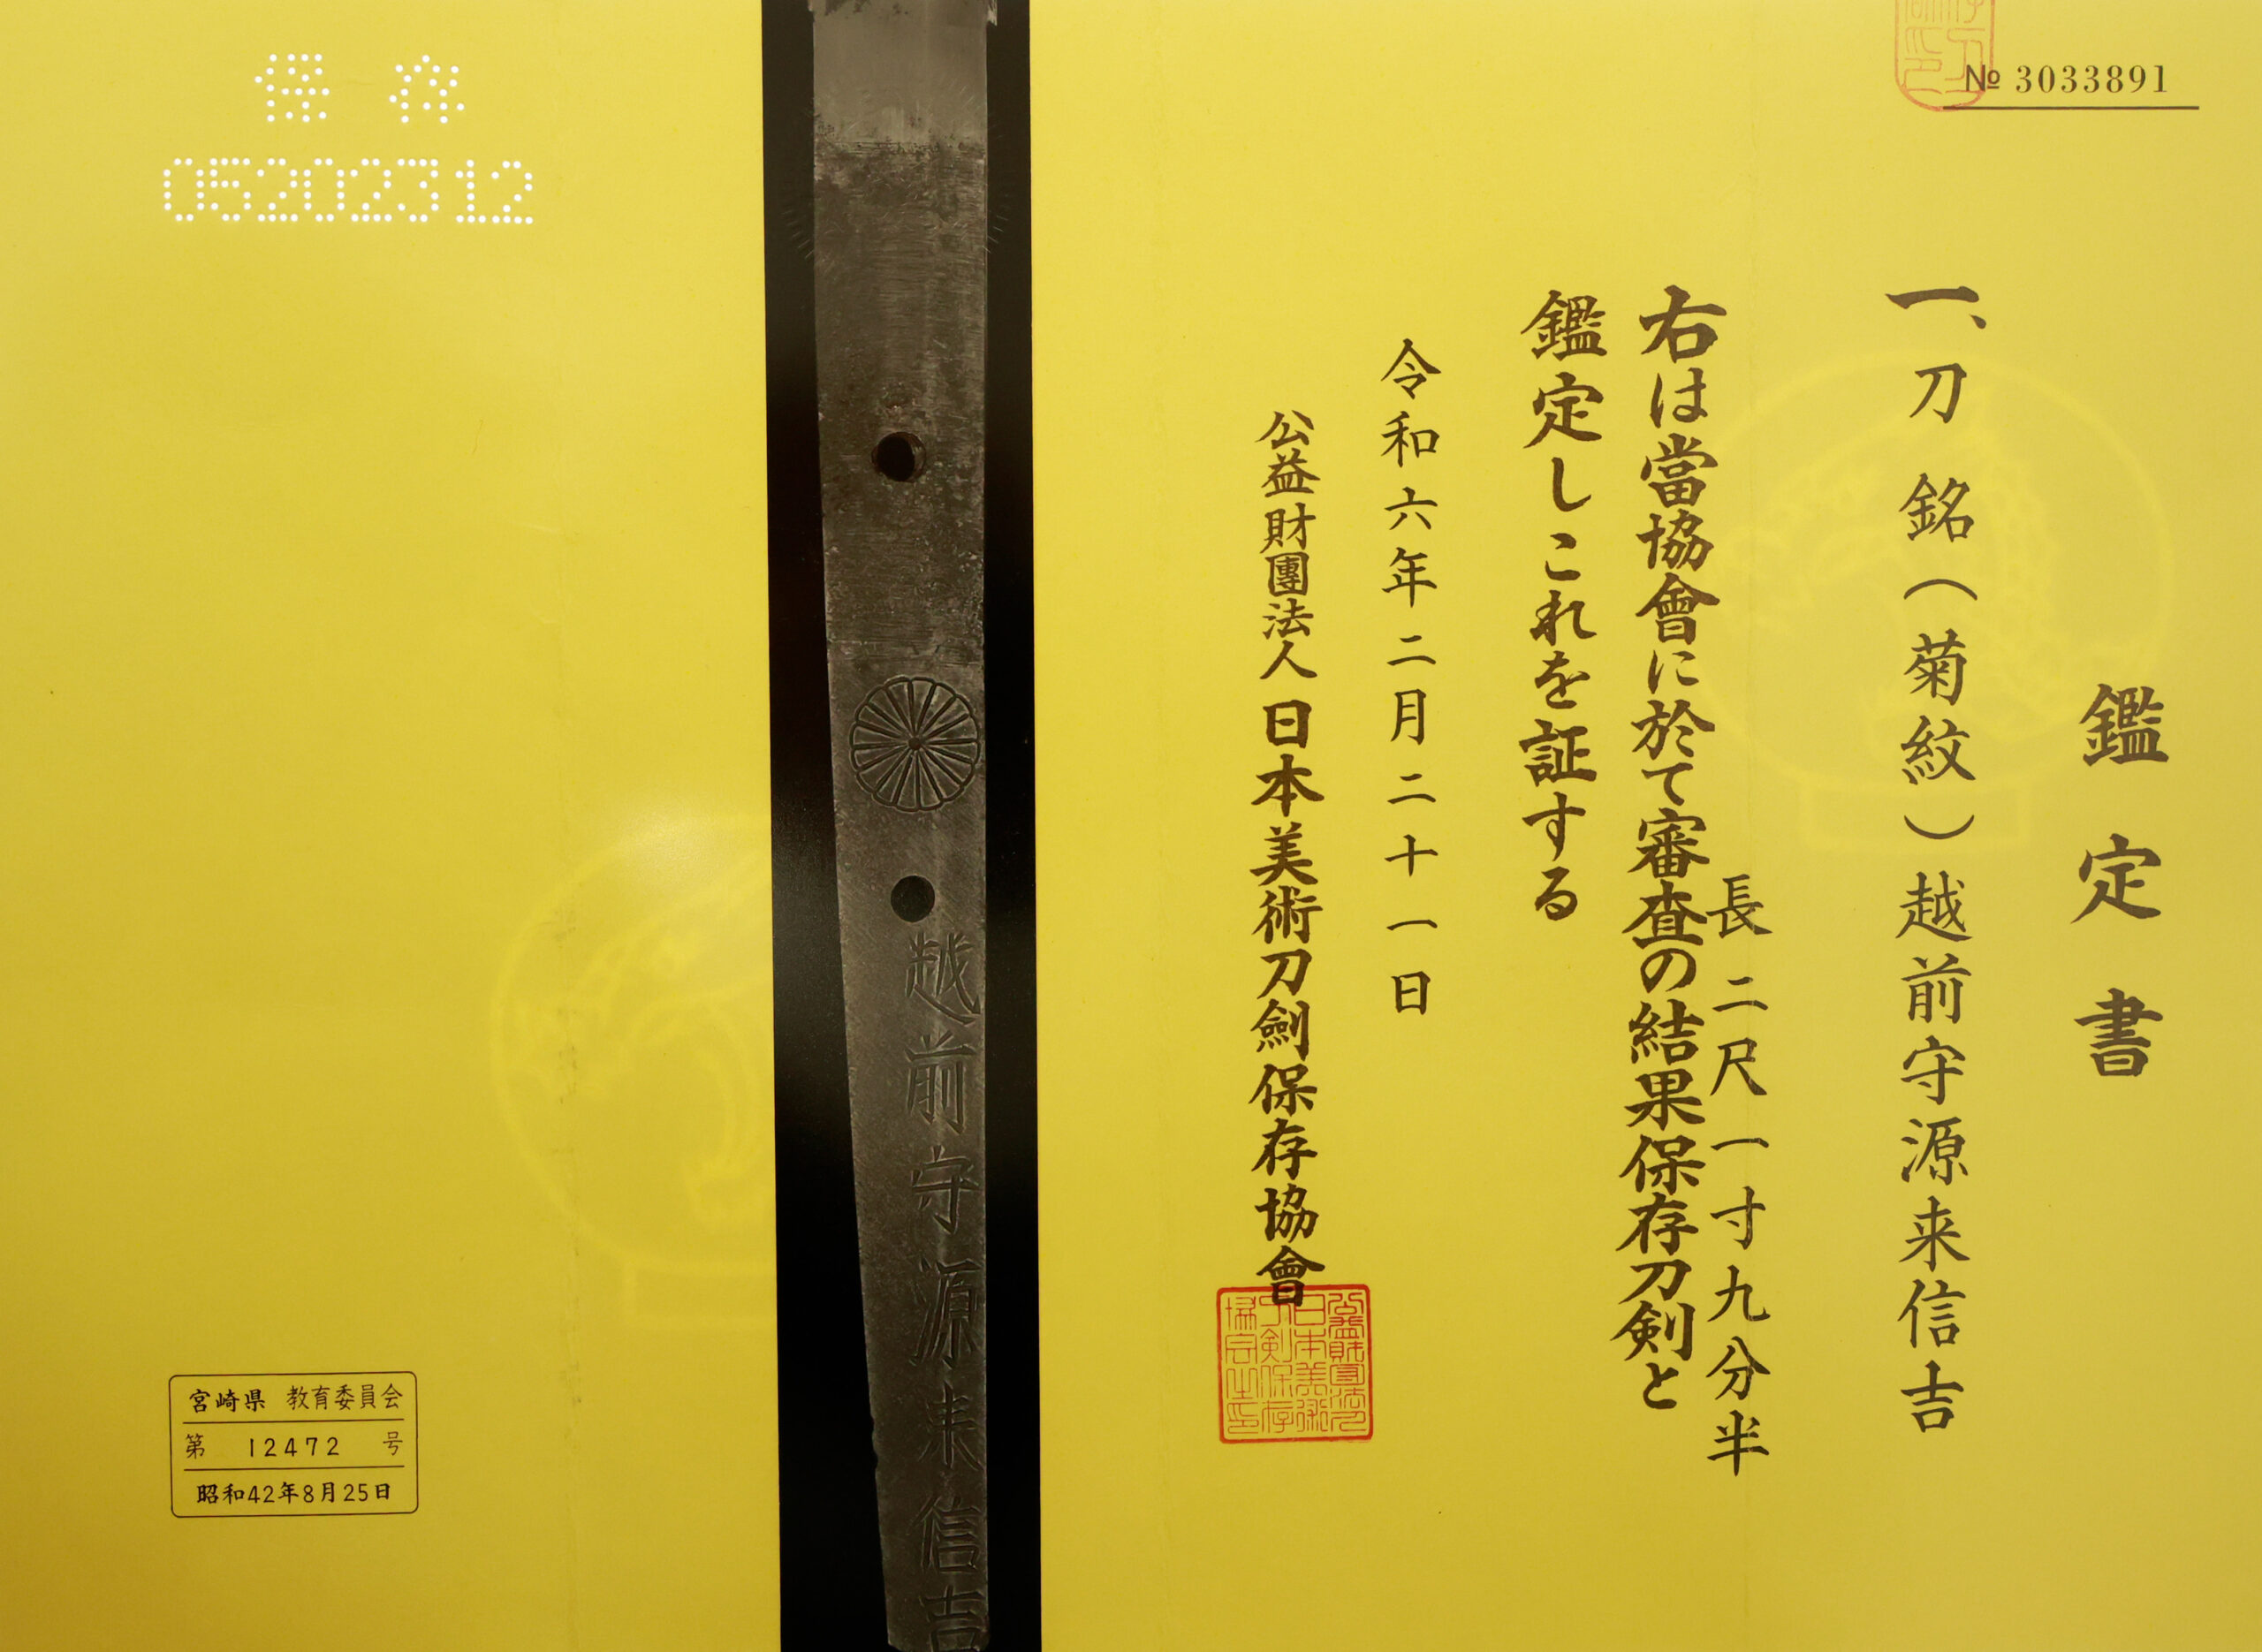 № 3033891
鑑定書
一、刀 銘(菊紋)越前守源来信吉
長 二尺一寸九分半
右は當協會に於て審査の結果保存刀剣と
鑑定しこれを証する
令和六年二月二十一日
公益財團法人 日本美術刀劍保存協會
越前守源来信吉
保存
05202312
宮崎県 教育委員会
第 12472 号
昭和42年8月25日